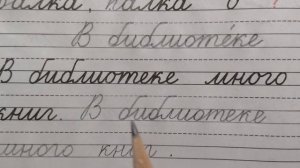 балка, палка
В библиоте́ке
В библиотеке много
книг. В библиотеке
много книг.